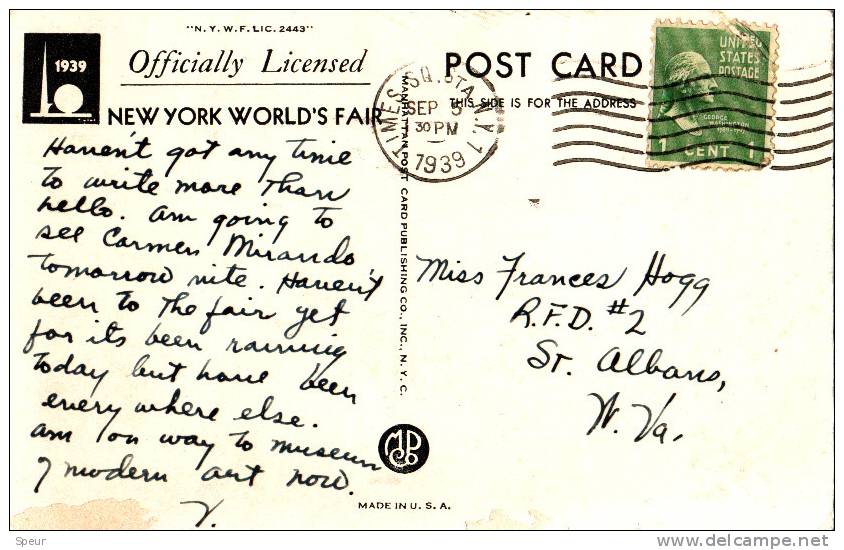 "N.Y.W.F. LIC. 2443"
1939
Officially Licensed
NEW YORK WORLD'S FAIR
POST CARD
THIS SIDE IS FOR THE ADDRESS
TIMES SQ. STA. N.Y. 1
SEP 5
30 PM
1939
UNITED
STATES
POSTAGE
GEORGE
WASHINGTON
1 CENT 1
Haven't got any time
to write more than
hello. Am going to
see Carmen Mirando
tomorrow nite. Haven't
been to the fair yet
for its been raining
today but have been
every where else.
Am on way to museum
of modern art now.
V.
MANHATTAN POST CARD PUBLISHING CO., INC., N.Y.C.
Miss Frances Hogg
R.F.D. #2
St. Albans,
W. Va.
MADE IN U.S.A.
Speur
delcampe.net